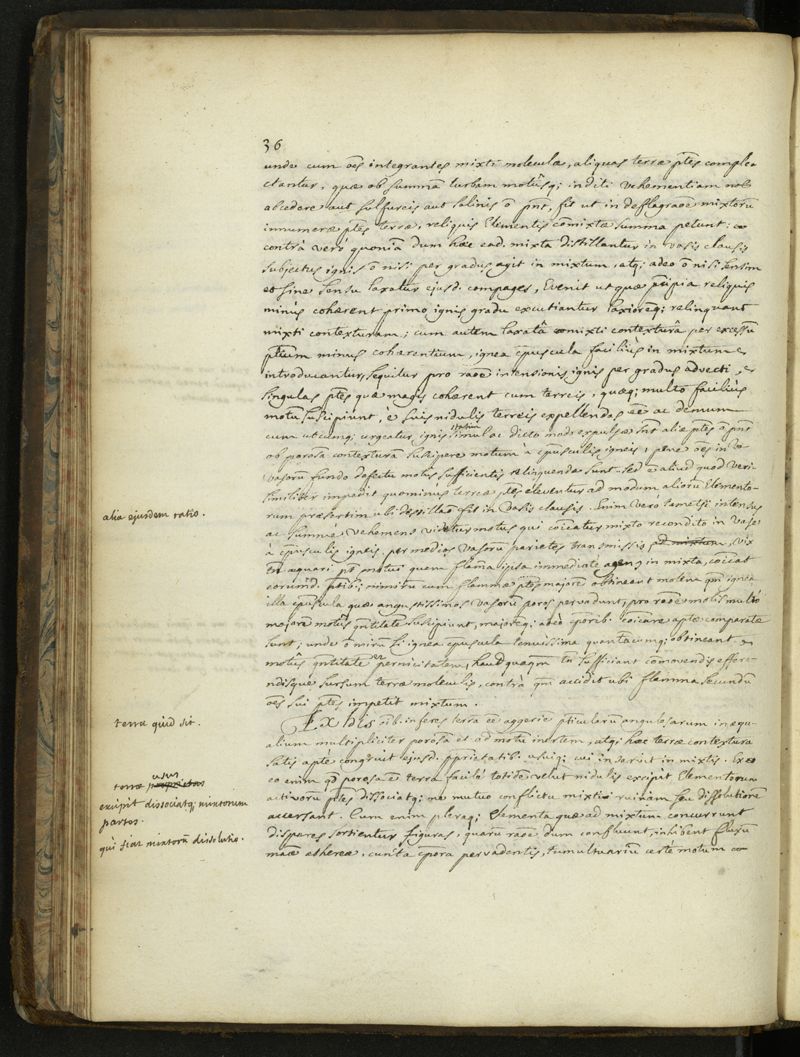 36
unde cum oēs integrantes mixti moleculæ, aliquas terræ ptēs comple
ctantur, quæ ob summā turbam motûsq; inditi vehementiam
accedere aut sulfureis aut salinis ō pnt, fit ut in deflagraoē mixtorū
innumeræ ptēs terræ, reliquis Elementis cōmixtæ summa petunt;
contrà verò quoniā dum hæc ead. mixta distillantur in vasis clausis
subjectus ignis ō nisi per gradus agit in mixtum, atq; adeo ō nisi sensim
et sine sensu laxatur ejusd. compages, Evenit ut quæ reliquis
minùs cohærent primo ignis gradu excutiantur laxiorēq; relinquant
mixti contexturam; cum autem laxatâ mixti contexturâ per excessū
ptium minus cohærentium, ignea cpuscula faciliùs in mixtum
introducantur, sequitur pro raōe intensionis ignis per gradus advecti,
singulas ptēs quæ magis cohærent cum terreis, quæq; multo faciliùs
motū suscipiunt, è suis nidulis terreis expellendas eē ac demum
cum utcumq; urgeatur ignis statim simul ac dicto modo expulsæ snt aliæ ptēs ō pnt
ob porosā contexturā suscipere motum à cpusculis igneis, pene oēs in
vasorū fundo defectu motûs sufficientis relinquendæ sunt. sed ē aliud quod veri-
similiter impedit quominùs terreæ ptēs eleventur ad modum aliorū Elemento-
rum præsertim ubi distillāo fit in vasis clausis. Enim vero tametsi intensus
ac summe vehemens videtur motus qui cōicatur mixto recondito in vase
à cpusculis igneis per medios vasorū parietes transmissis ad mixtum, vix
tn æquari pt motui quem flāma ipsa immediate agens in mixta, cōicat
eorumd. ptib; nimirū cum flammæ ptes majorē obtineant molem qm ignea
illa cpuscula quæ angustissimos vasorū poros pervadunt, pro raōe molis multò
majorē motûs qntitatē suscipiunt, majorēq; adeò cporib. cōicare aptè comparatæ
sunt; unde ō mirū si ignea cpuscula tenuissima quantācumq; obtineant
motûs qntitatē et pernicitatem, haudquaqm tn sufficiant cōmovendis effere-
ndisque sursum terræ moleculis, contrà qm accidit ubi flamma secundū
oēs sui ptes impetit mixtum.
Ex his oīb. inferes terra eē aggeriē pticularū angulosarum inæqu-
alium multipliciter porosā et ad motū inertem, atqi hæc terræ contextura
satis aptè congruit ejusd. pprietatib. usuiq; cui inservit in mixtis. Ex
eo enim qd porosa ē terra facilè totidē velut nidulis excipit Elementorū
activorū ptēs dissociatq; ne mutuo conflictu mixti ruinam seu dissolutionē
accersant. Cum enim pleraq; Elementa quæ ad mixtum concurrunt
dispares sortientur figuras, quarū raōe dum confluunt, inhibent fluxū
mæ ethereæ, cuncta cpora pervadentis, tumultuariū certè motum
alia ejusdem ratio.
terra quid sit.
terræ proprietas usus
excipit dissociatq; mixtorum
partes.
qui fiat mixtorū dissolutio.